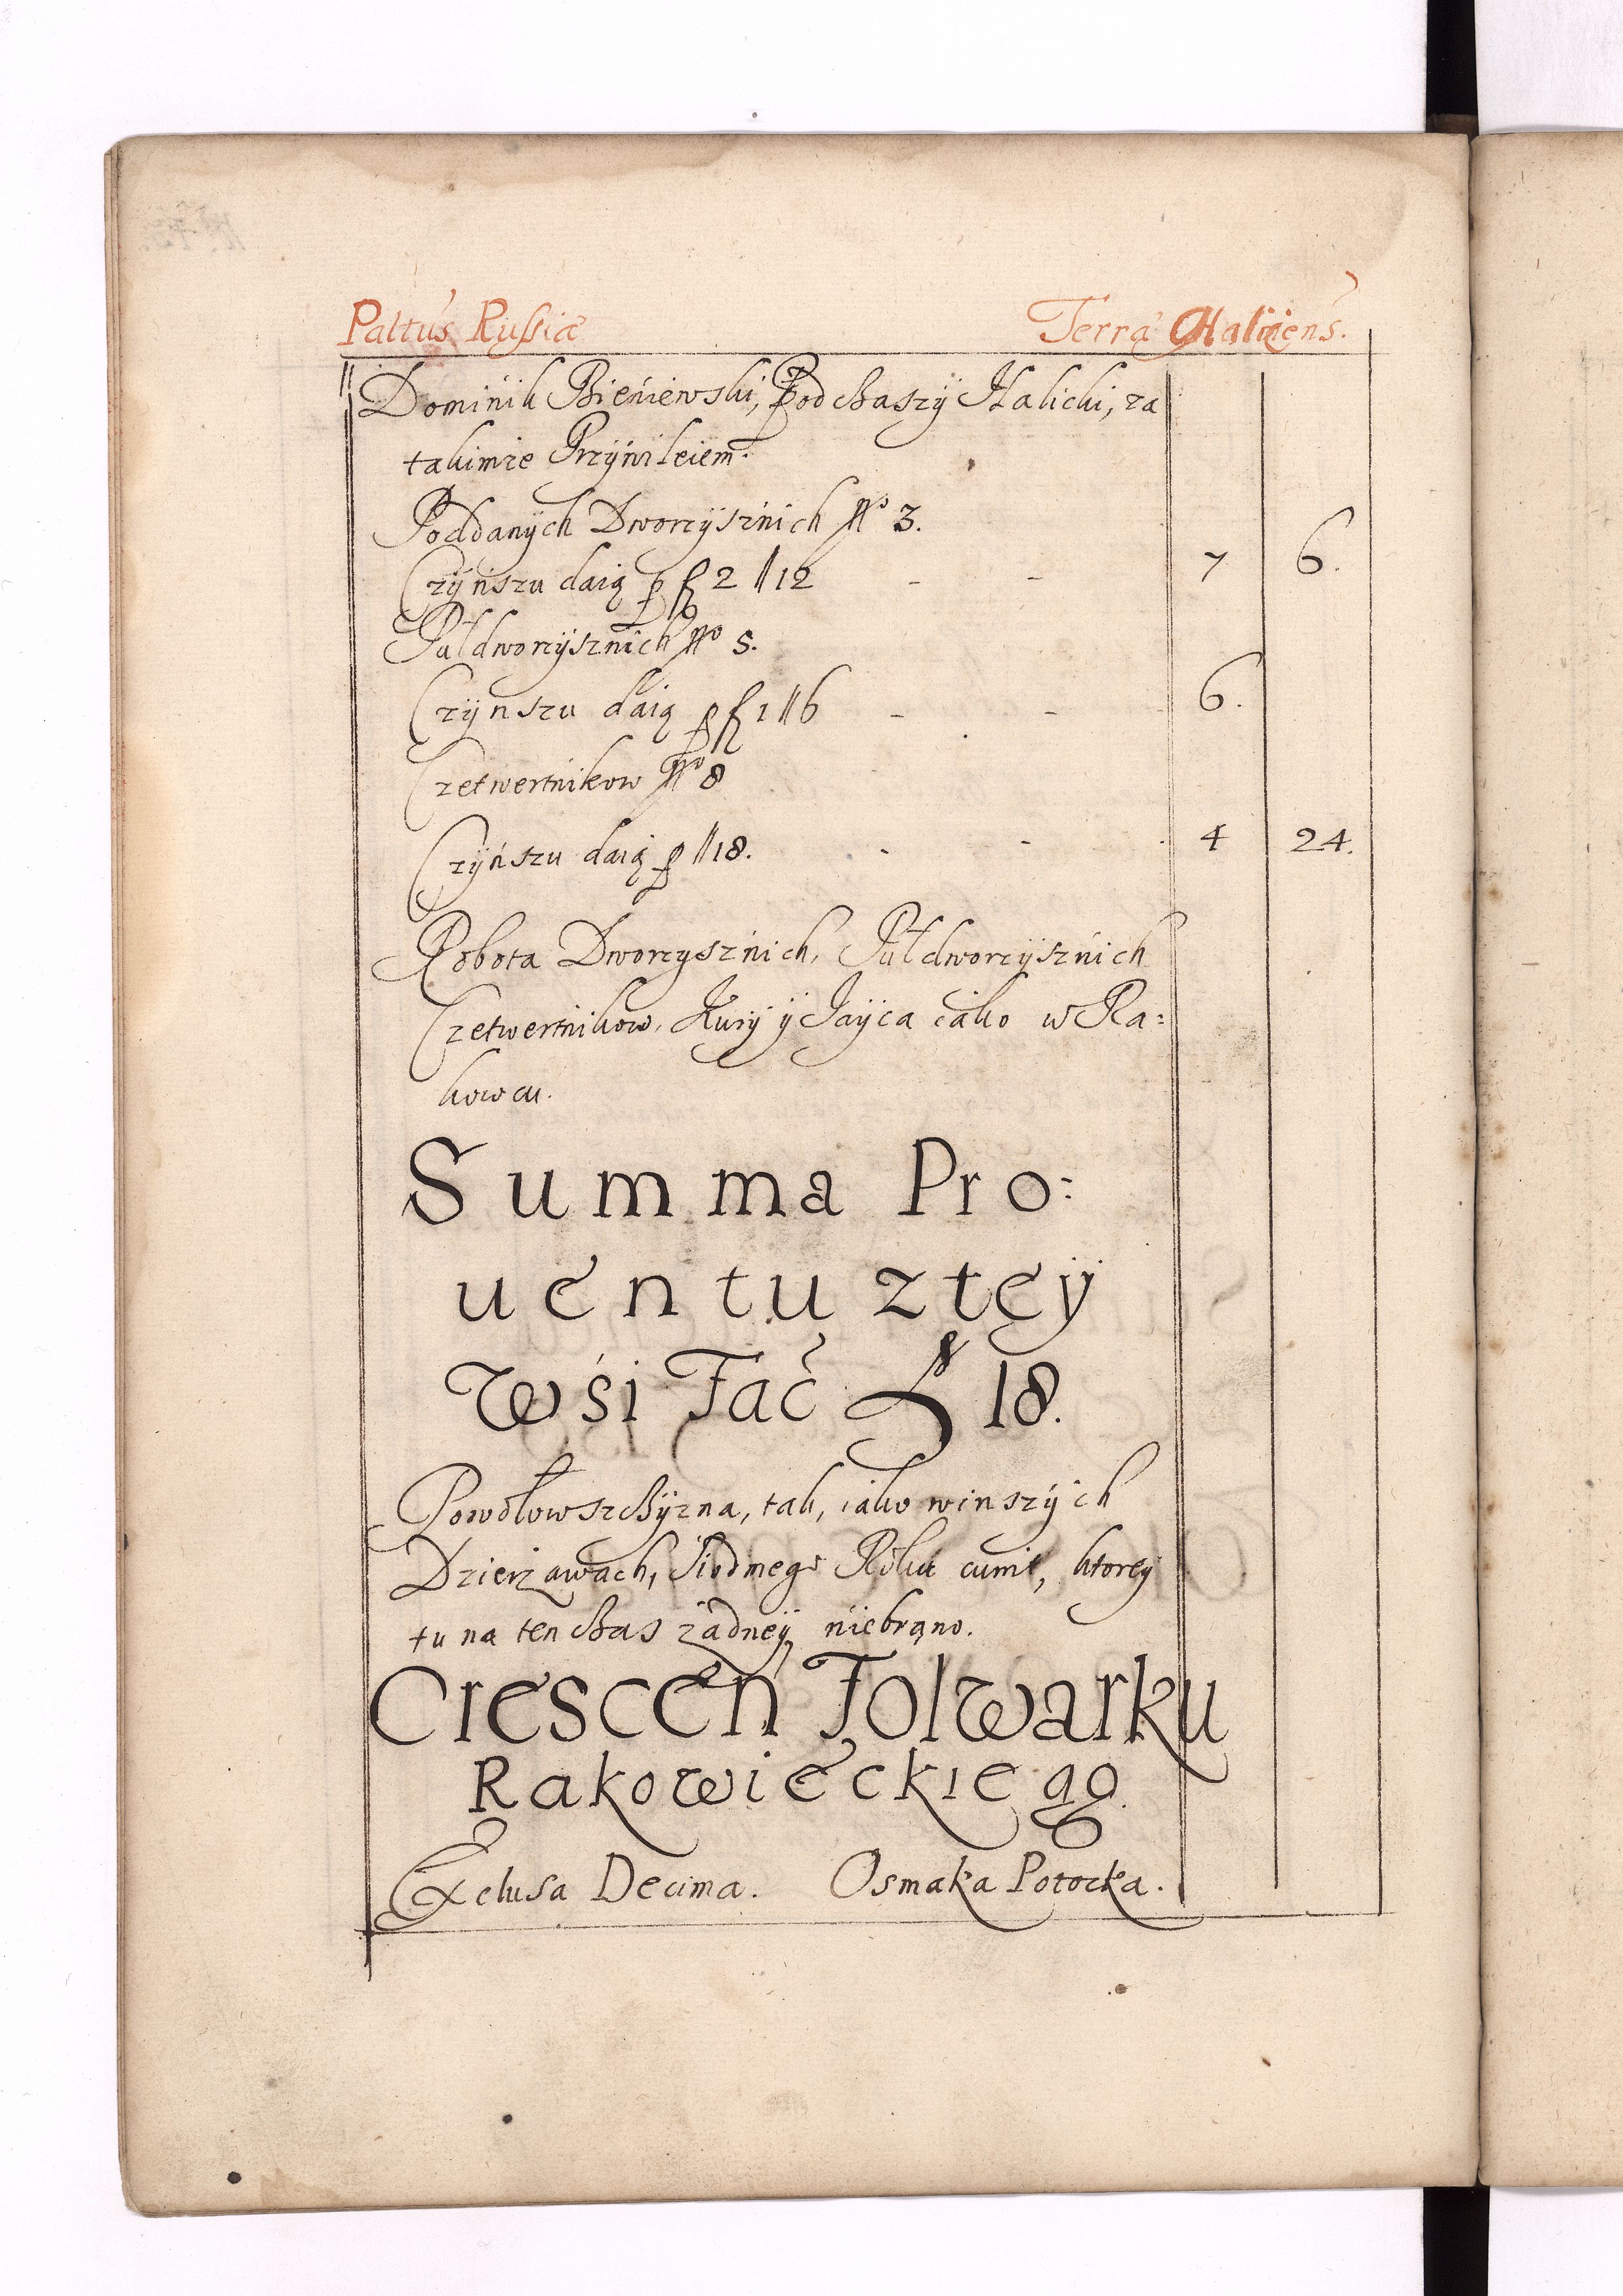 Paltus Russiæ Terra Halicens.
Dominik Bieniewski, Podczaszÿ Halicki, za
takimże Przÿwileiem.
Poddanÿch Dworzÿsznich No 3.
Czÿnszu daią p fl 2 ǁ 12 - - 7 6.
Puł dworzÿsznich No 5.
Czÿnszu daią p fl 1 ǁ 6 - - 6.
Czetwertnikow No 8
Czÿnszu daią p ǁ 18. - - 4 24.
Robota Dworzysznich, Puł dworzÿsznich
Czetwertnikow, Kurÿ ÿ Jaÿca iako w Ra:
kowcu.
Summa Pro:
uentu z teÿ
wśi Fac fl 18.
Powołowszczÿzna, tak, iako w inszÿch
Dzierżawach, Siodmego Roku, ktoreÿ
tu na ten czas żadneÿ niebrano.
Crescen Folwarku
Rakowieckiego.
Exclusa Decima. Osmaka Potocka.